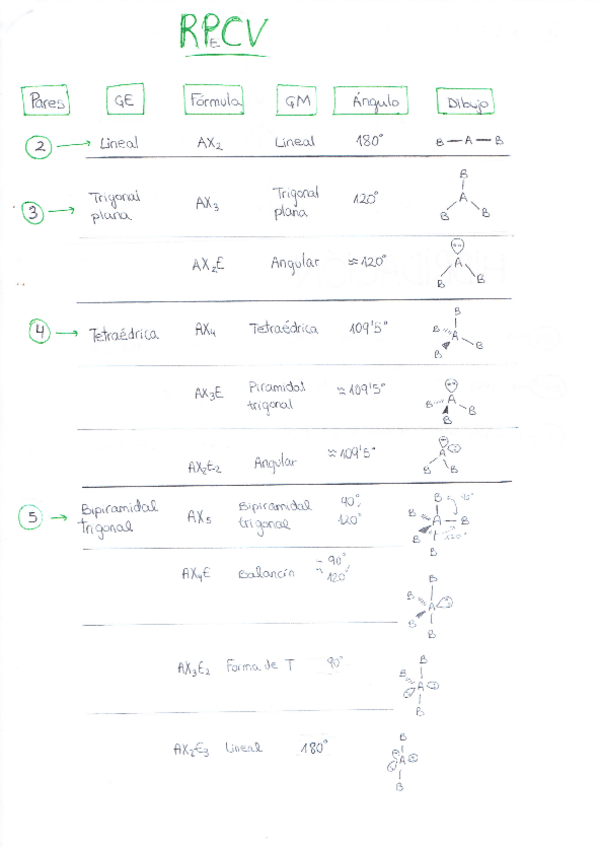 RPECV
Pares GE Fórmula GM Ángulo Dibujo
2 → Lineal AX2 Lineal 180° B — A — B
3 → Trigonal plana AX3 Trigonal plana 120° B A B B
AX2E Angular ≈120° A B B
4 → Tetraédrica AX4 Tetraédrica 109'5° B B A B B
AX3E Piramidal trigonal ≈109'5° B A B B
AX2E2 Angular ≈109'5° A B B
5 → Bipiramidal trigonal AX5 Bipiramidal trigonal 90°, 120° B B A B B B 90° 120°
AX4E Balancín ≈90°, 120° B B A B B
AX3E2 Forma de T 90° B B A B
AX2E3 Lineal 180° B A B